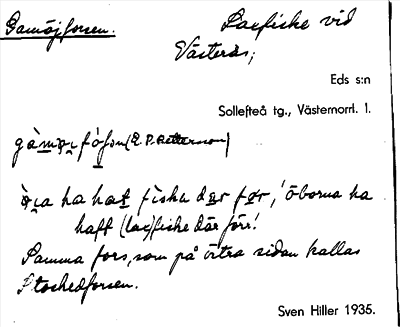 Gamöjforsen.
Laxfiske vid
Västerås;
Eds s:n
Sollefteå tg., Västernorrl. l.
(E P. Petterson)
ha hat fiska dər før, 'öborna ha
haft (lax)fiske där förr'.
Samma fors, som på östra sidan kallas
Stockedforsen.
Sven Hiller 1935.